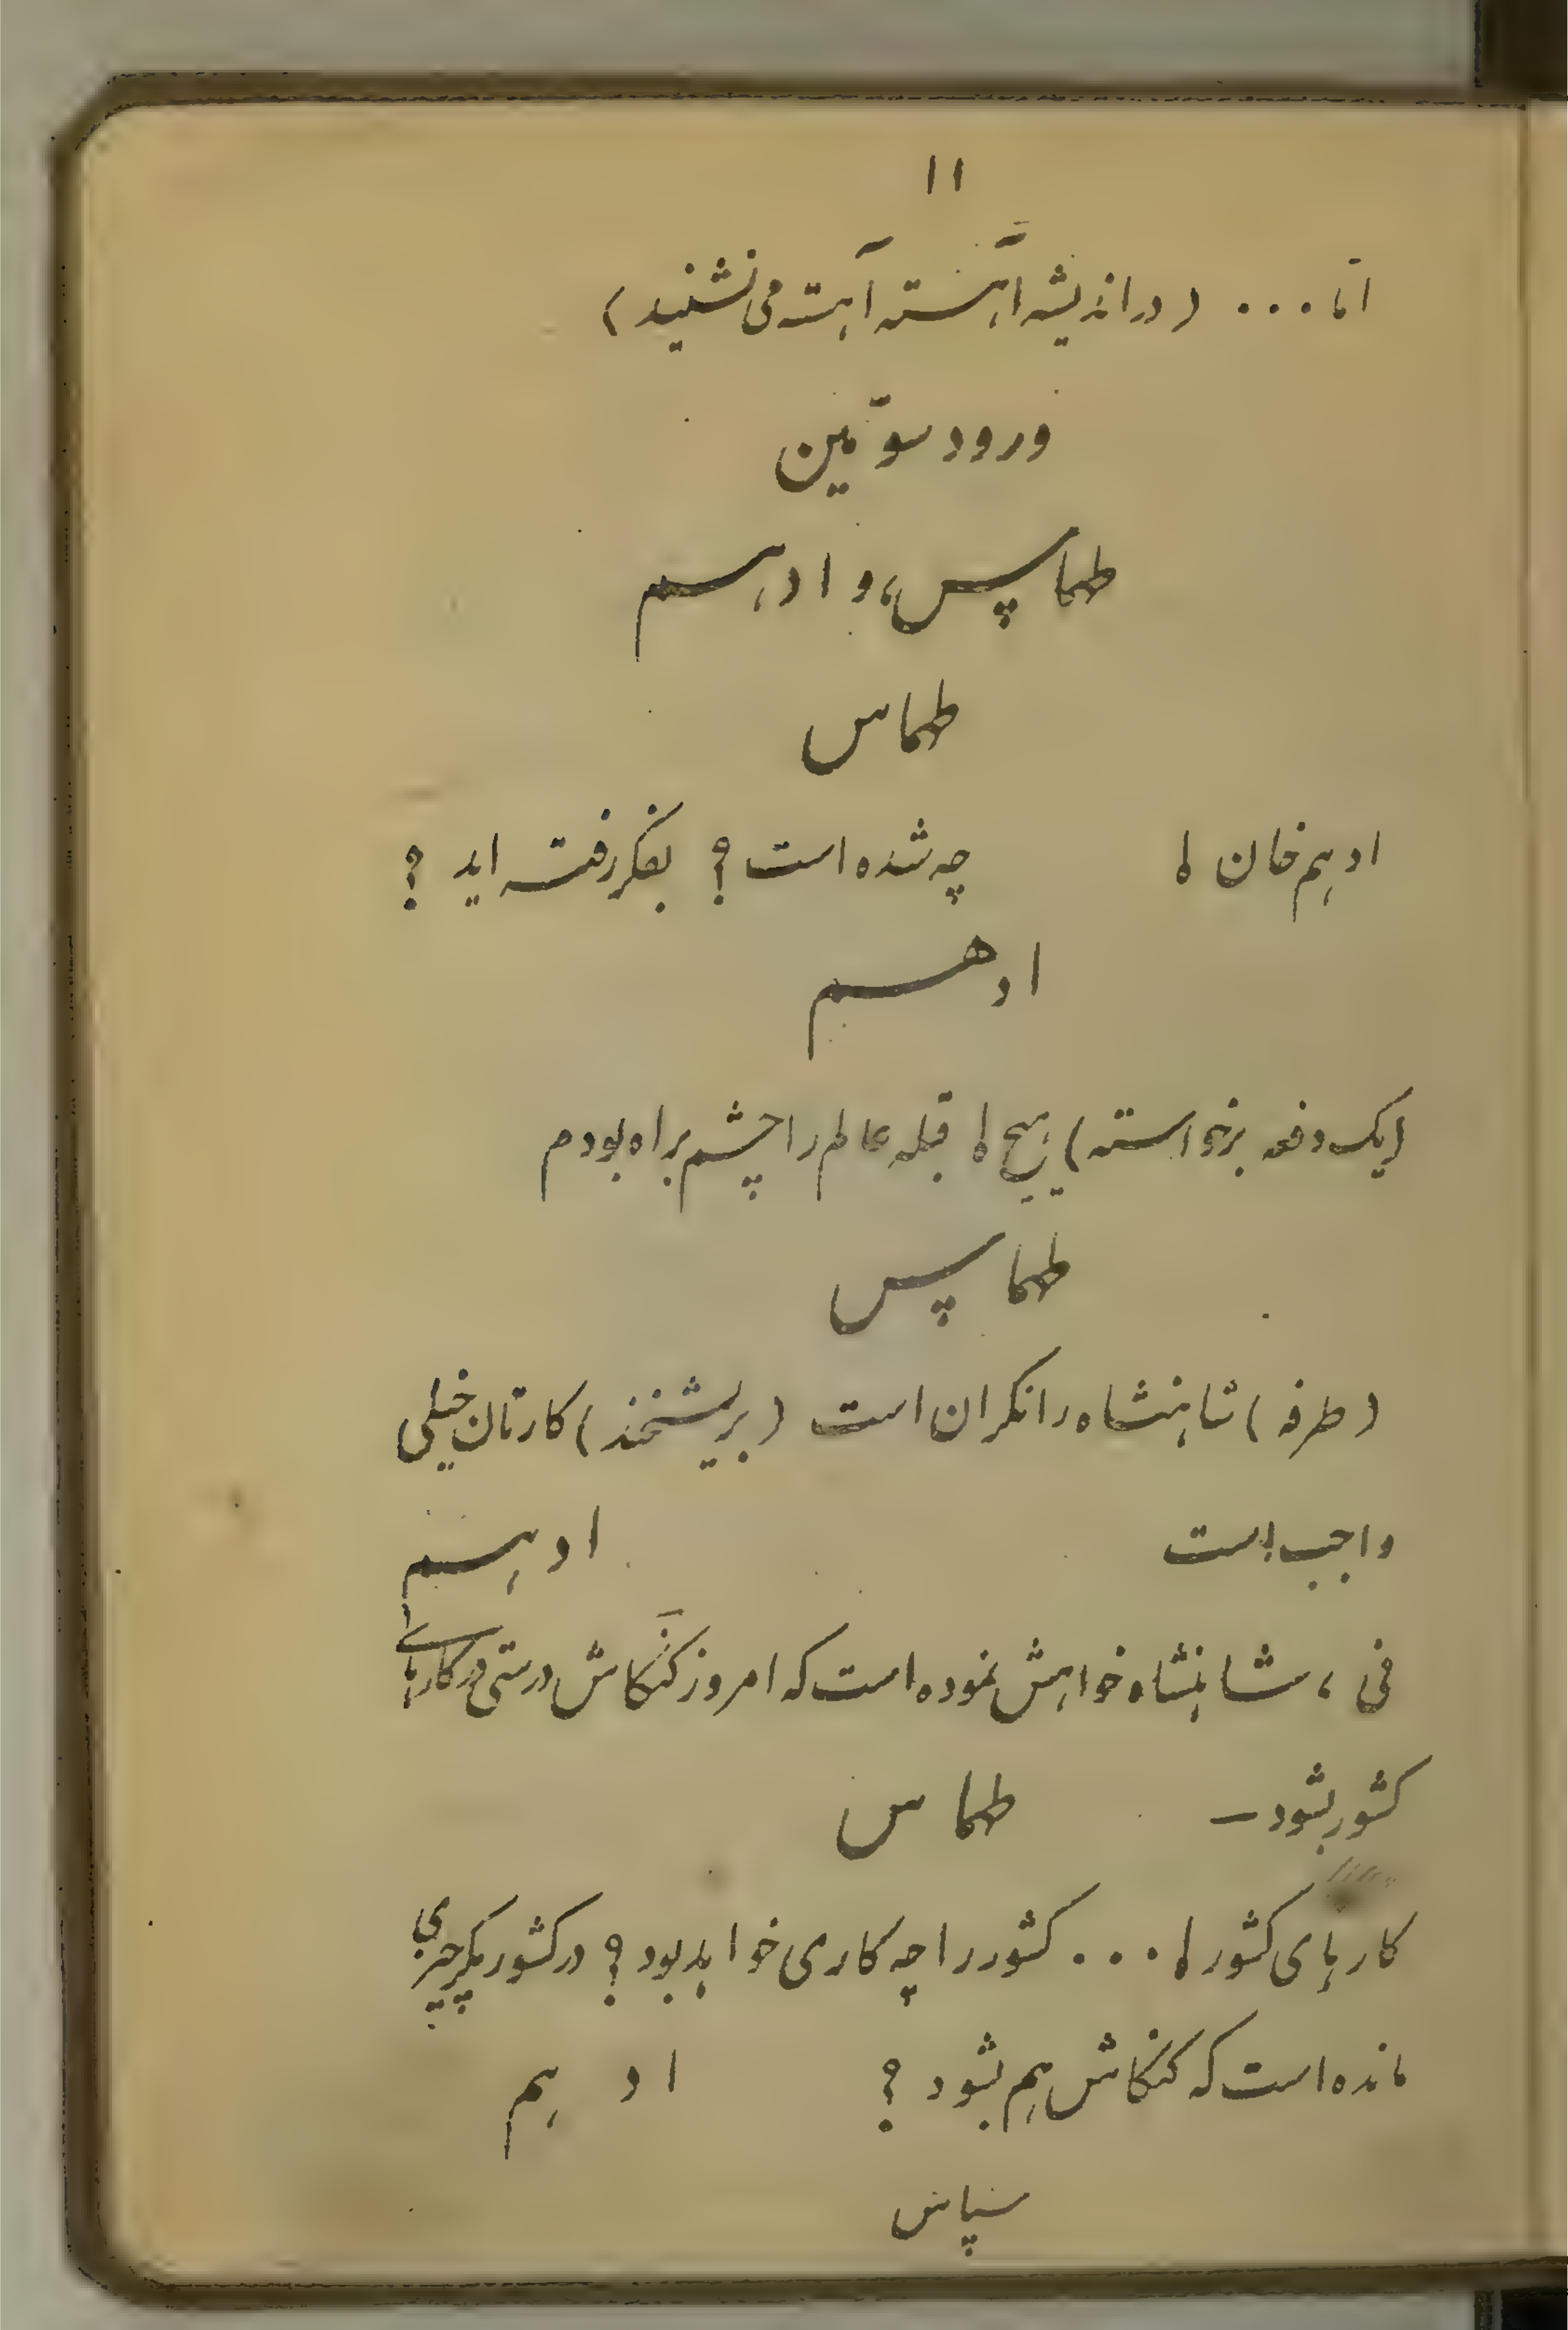 ۱۱
امّا... (در اندیشه آهسته آهسته می نشیند)
ورود سوّمین
طهماسپ، و ادهم
طهماس
ادهم خان ! چه شده است؟ بفکر رفته اید ؟
ادهم
(یک دفعه برخواسته) هیچ! قبله عالم را چشم براه بودم
طهماسپ
(طرفه) شاهنشاه را نگران است (بریشخند) کارتان خیلی
واجب است ادهم
نی، شاهنشاه خواهش نموده است که امروز کنگاش درستی در کارهای
کشور بشود – طهماس
کارهای کشور!... کشور را چه کاری خواهد بود؟ در کشور مگر چیزی
مانده است که کنگاش هم بشود ؟ ادهم
سپاس